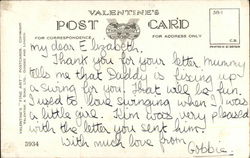 VALENTINE'S
POST CARD
FOR CORRESPONDENCE
FOR ADDRESS ONLY
my dear Elizabeth,
Thank you for your letter, mummy
tells me that Daddy is fixing up
a swing for you. That will be fun.
I used to love swinging when I was
a little girl. Tim was very pleased
with the letter you sent him.
With much love from
5934